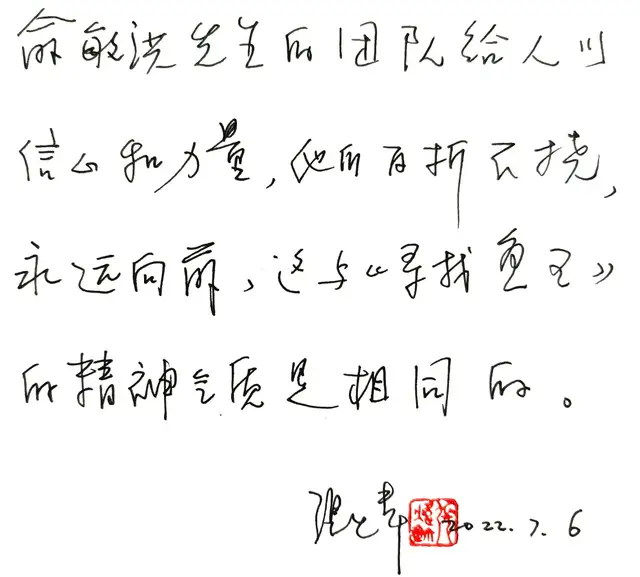 俞敏洪先生的团队给人以
信心和力量，他的百折不挠，
永远向前，这与《寻找鱼王》
的精神气质是相同的。
张炜 2022.7.6